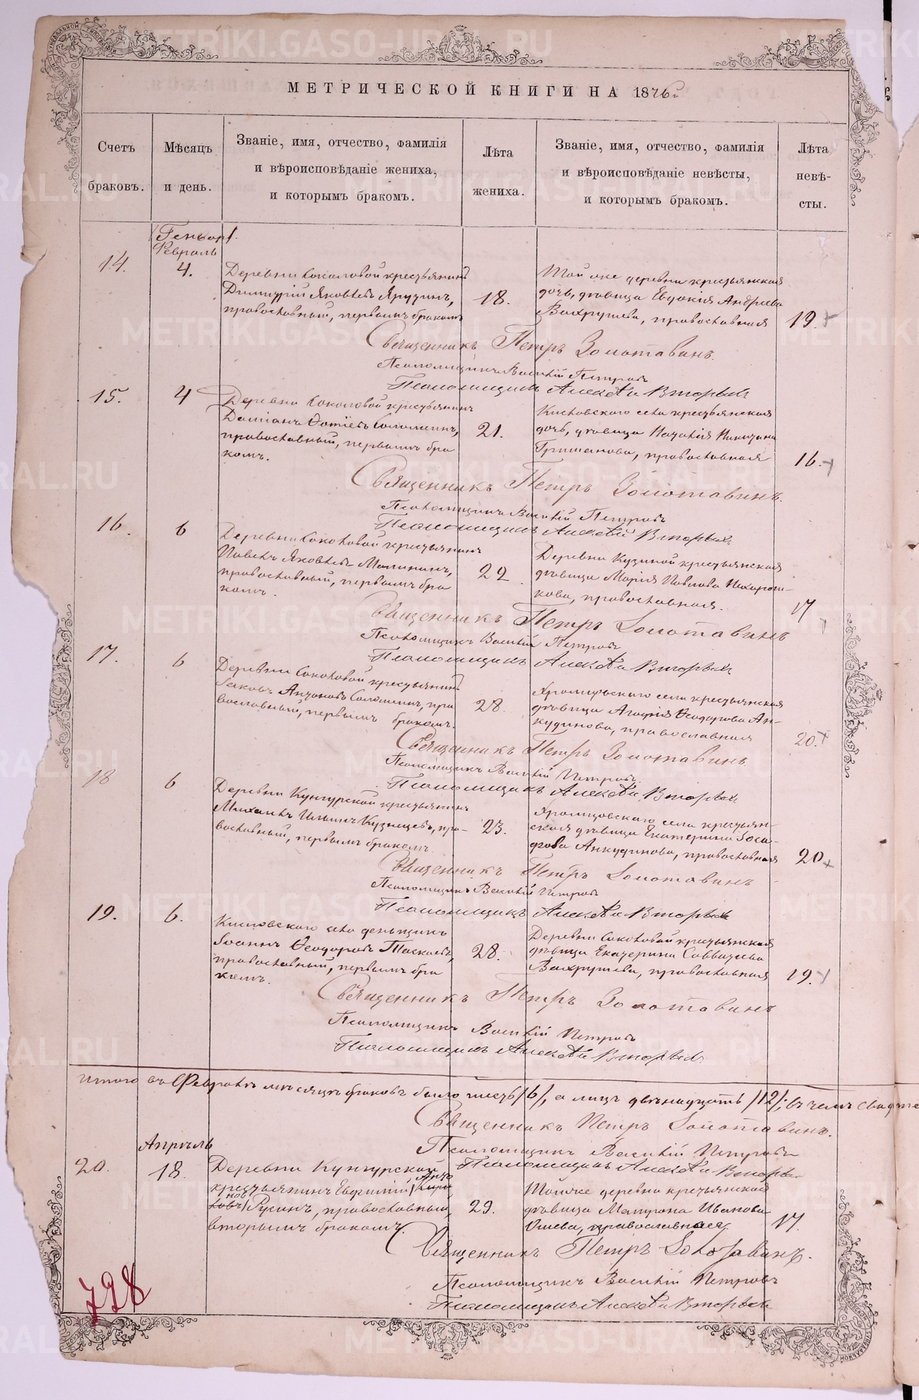 МЕТРИЧЕСКОЙ КНИГИ НА 1876 г.
Счетъ браковъ.
Мѣсяцъ и день.
Званіе, имя, отчество, фамилія
и вѣроисповѣданіе жениха,
и которымъ бракомъ.
Лѣта
жениха.
Званіе, имя, отчество, фамилія
и вѣроисповѣданіе невѣсты,
и которымъ бракомъ.
Лѣта
невѣ-
сты.
Февраль
14.
4.
Деревни Соколовой крестьянинъ
Димитрій Яковлевъ
православный, первымъ бракомъ
18.
Той же деревни крестьянская
дочь, дѣвица Евдокія Андреева
Вахрушева, православная
19.
Священникъ Петръ Золотавинъ
Псаломщикъ Василій Петровъ
Псаломщикъ Алексѣй Вторыхъ
15.
4
Деревни Соколовой крестьянинъ
Даміанъ Фотіевъ
православный, первымъ бра
комъ.
21.
Кисловскаго села крестьянская
дочь, дѣвица
православная
16.
Священникъ Петръ Золотавинъ.
Псаломщикъ Василій Петровъ
Псаломщикъ Алексѣй Вторыхъ
16.
6
Деревни Соколовой крестьянинъ
Павелъ Яковлевъ
православный, первымъ бра
комъ.
22
Деревни крестьянская
дѣвица Марія Павлова
православная.
17
Священникъ Петръ Золотавинъ
Псаломщикъ Василій Петровъ
Псаломщикъ Алексѣй Вторыхъ
17.
6
Деревни Соколовой крестьянинъ
Іаковъ Антоновъ пра
вославный, первымъ бракомъ.
28.
села крестьянская
дѣвица Агафія Ѳеодорова Ан-
кудинова, православная
20.
Священникъ Петръ Золотавинъ
Псаломщикъ Василій Петровъ
Псаломщикъ Алексѣй Вторыхъ
18
6
Деревни Кунгурской крестьянинъ
Михаилъ Ильинъ Кузнецовъ, пра-
вославный, первымъ бракомъ
23.
села крестьян-
ская дѣвица Екатерина
Анкудинова, православная
20
Священникъ Петръ Золотавинъ
Псаломщикъ Василій Петровъ
Псаломщикъ Алексѣй Вторыхъ
19.
6.
Кисловскаго села
Іоаннъ Ѳеодоровъ
православный, первымъ бра
комъ.
28.
Деревни Соколовой крестьянская
дѣвица Екатерина Савватѣева
Вахрушева, православная
19.
Священникъ Петръ Золотавинъ
Псаломщикъ Василій Петровъ
Псаломщикъ Алексѣй Вторыхъ
Итого въ Февралѣ мѣсяцѣ браковъ было шесть /6/, а лицъ двѣнадцать /12/, въ чемъ
Священникъ Петръ Золотавинъ.
Псаломщикъ Василій Петровъ
Псаломщикъ Алексѣй Вторыхъ
Апрѣль
20.
18.
Деревни Кунгурской
крестьянинъ Евфимій
Русинъ, православный
вторымъ бракомъ.
29.
Той же деревни крестьянская
дѣвица Матрона Иванова
православная
17.
Священникъ Петръ Золотавинъ.
Псаломщикъ Василій Петровъ
Псаломщикъ Алексѣй Вторыхъ
728
METRIKI.GASO-URAL.RU